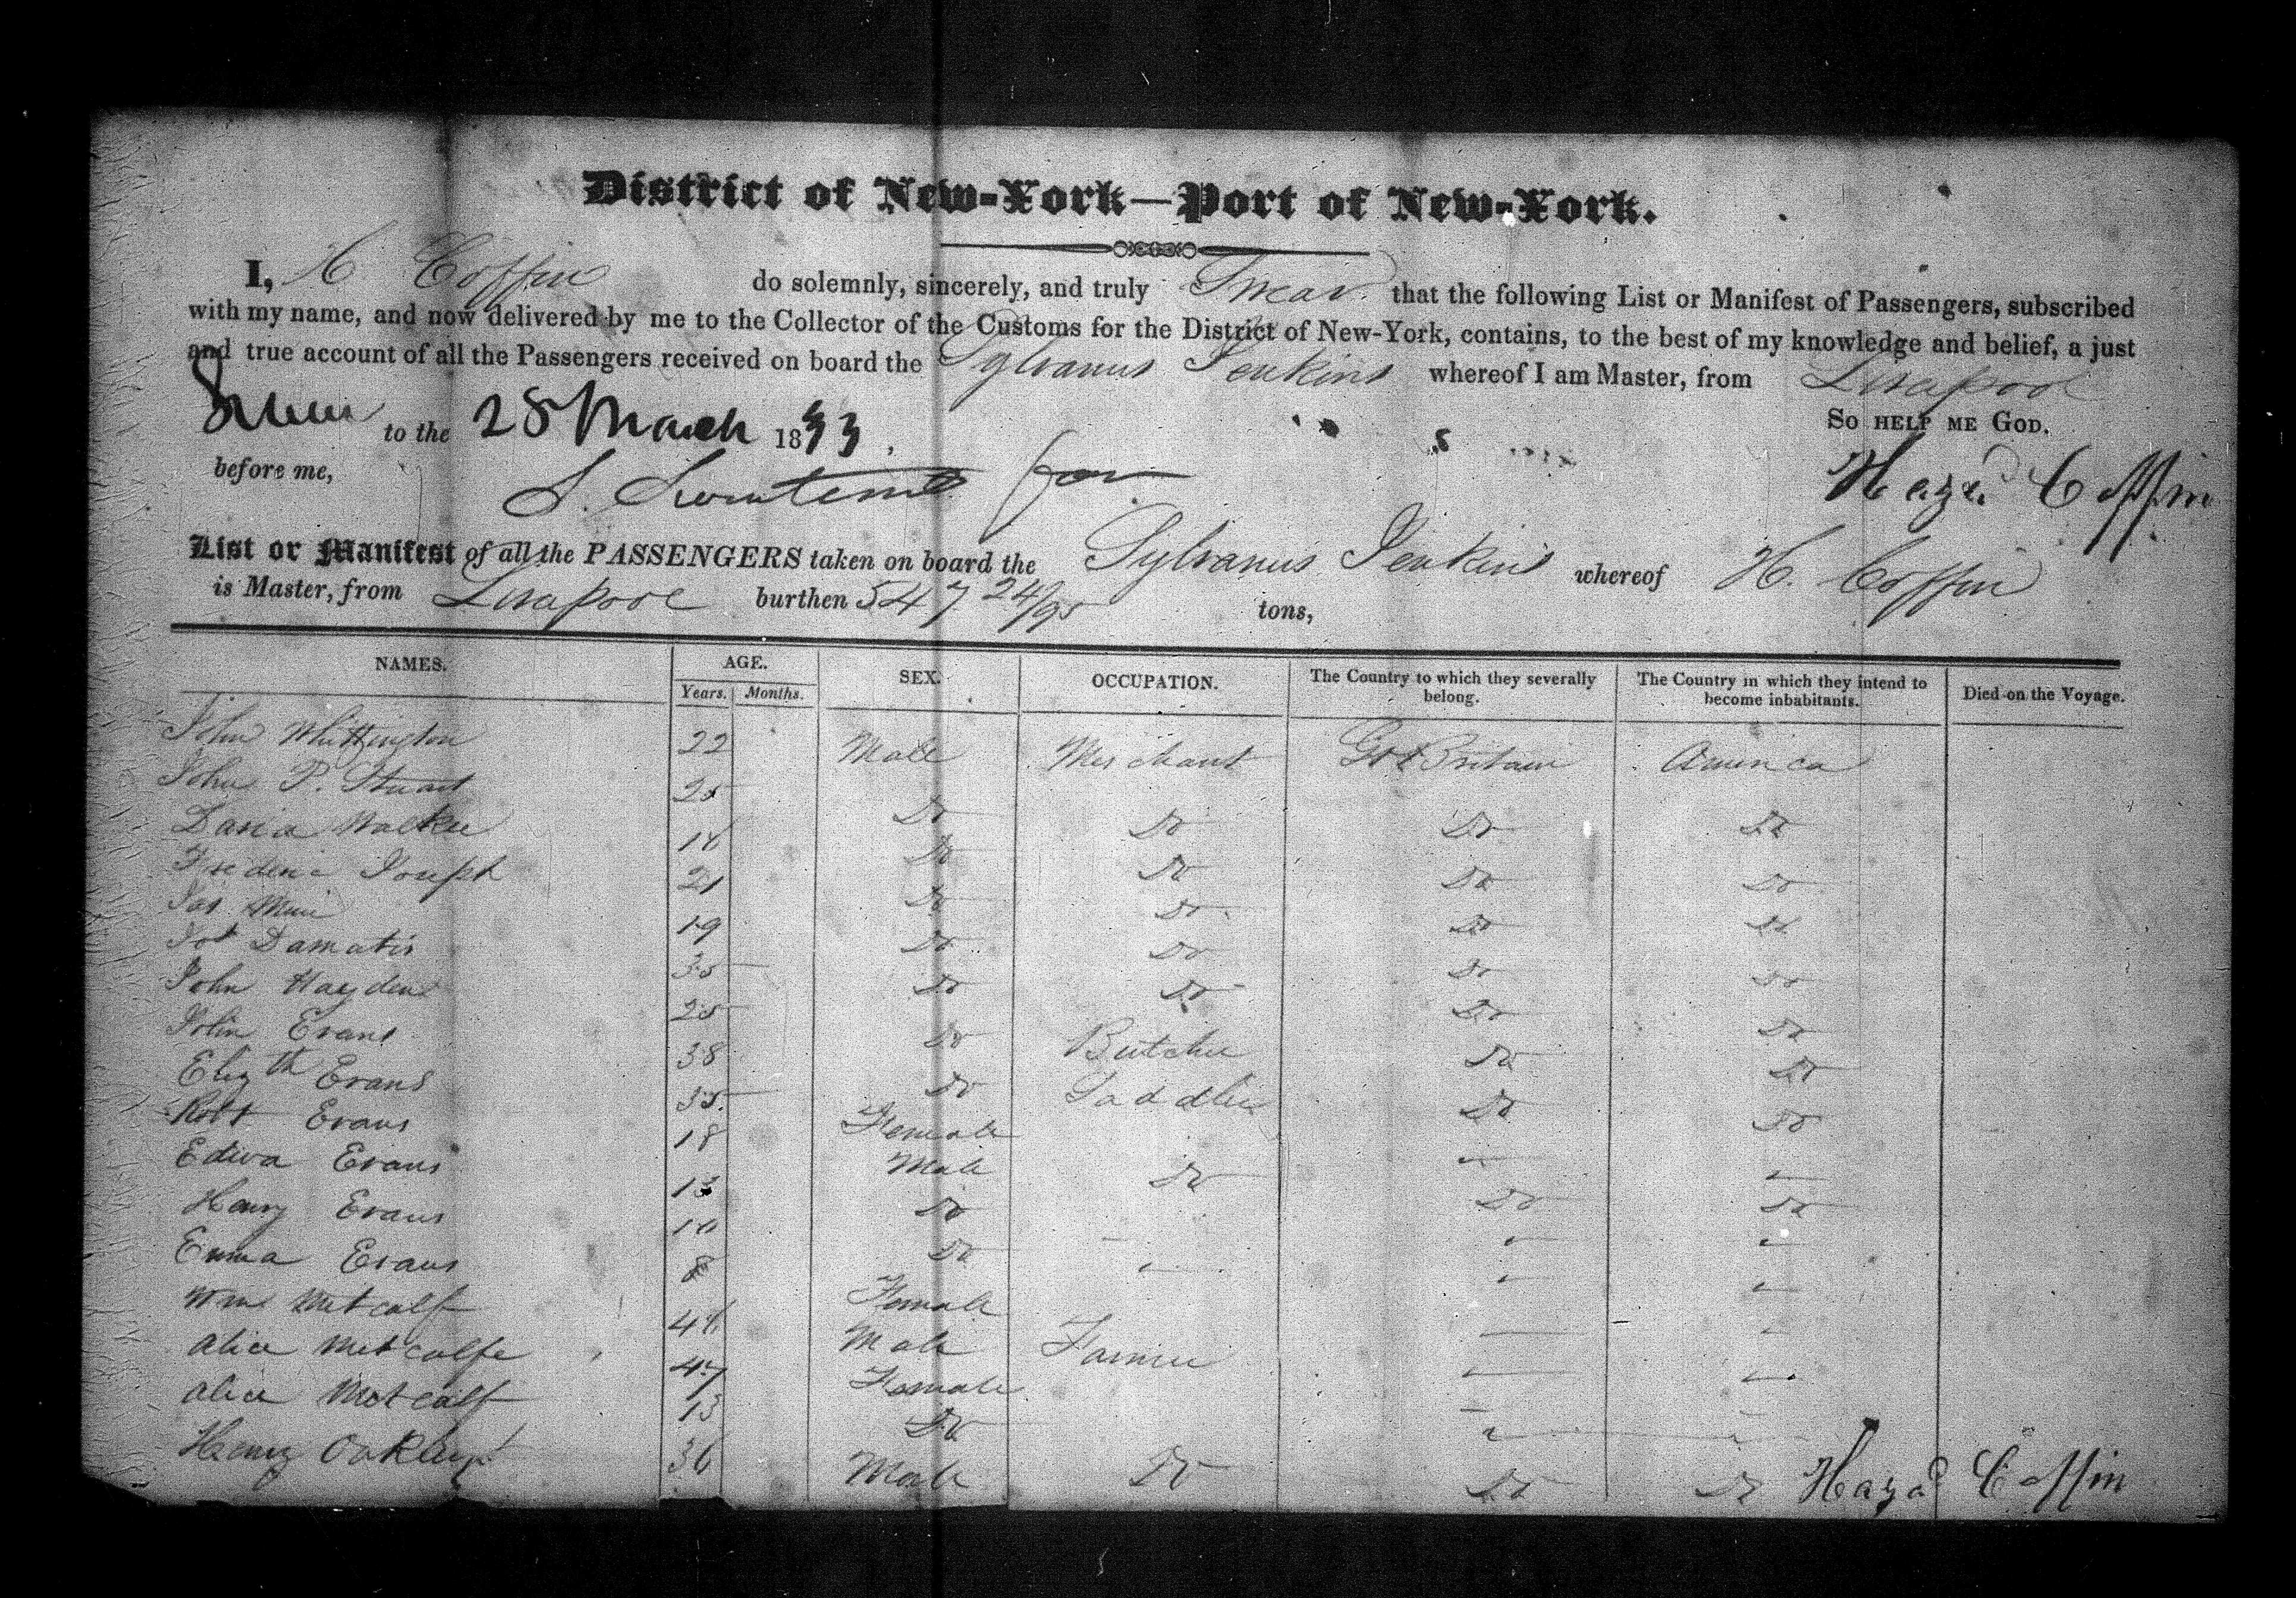 District of New-York—Port of New-York.
I, H Coffin do solemnly, sincerely, and truly Swear that the following List or Manifest of Passengers, subscribed
with my name, and now delivered by me to the Collector of the Customs for the District of New-York, contains, to the best of my knowledge and belief, a just
and true account of all the Passengers received on board the Sylvanus Jenkins whereof I am Master, from Liverpool
to the 28 March 1833. So HELP ME GOD.
before me, for Hazd Coffin
List or Manifest of all the PASSENGERS taken on board the Sylvanus Jenkins whereof H. Coffin
is Master, from Liverpool burthen 547 24/95 tons,
NAMES. AGE. Years. Months. SEX. OCCUPATION. The Country to which they severally belong. The Country in which they intend to become inhabitants. Died on the Voyage.
John Whittington 22 Male Merchant Gt Britain America
John P. Stuart 25 Do Do Do Do
Walker Do Do Do Do
Joseph 21 Do Do Do Do
Jas Muir 19 Do Do Do Do
Damatis 35 Do Do Do Do
John Hayden 25 Do Butcher Do Do
John Evans 38 Do Saddler Do Do
Elizth Evans 35 Female
Robt Evans 18 Male Do Do Do
Evans 13 Do
Henry Evans 10 Do
Emma Evans 8 Female
Wm Metcalf Male Farmer
Alice Metcalfe 47 Female
Alice Metcalf 13 Do
Henry Oakley 36 Male Do Do Do
Hazd Coffin